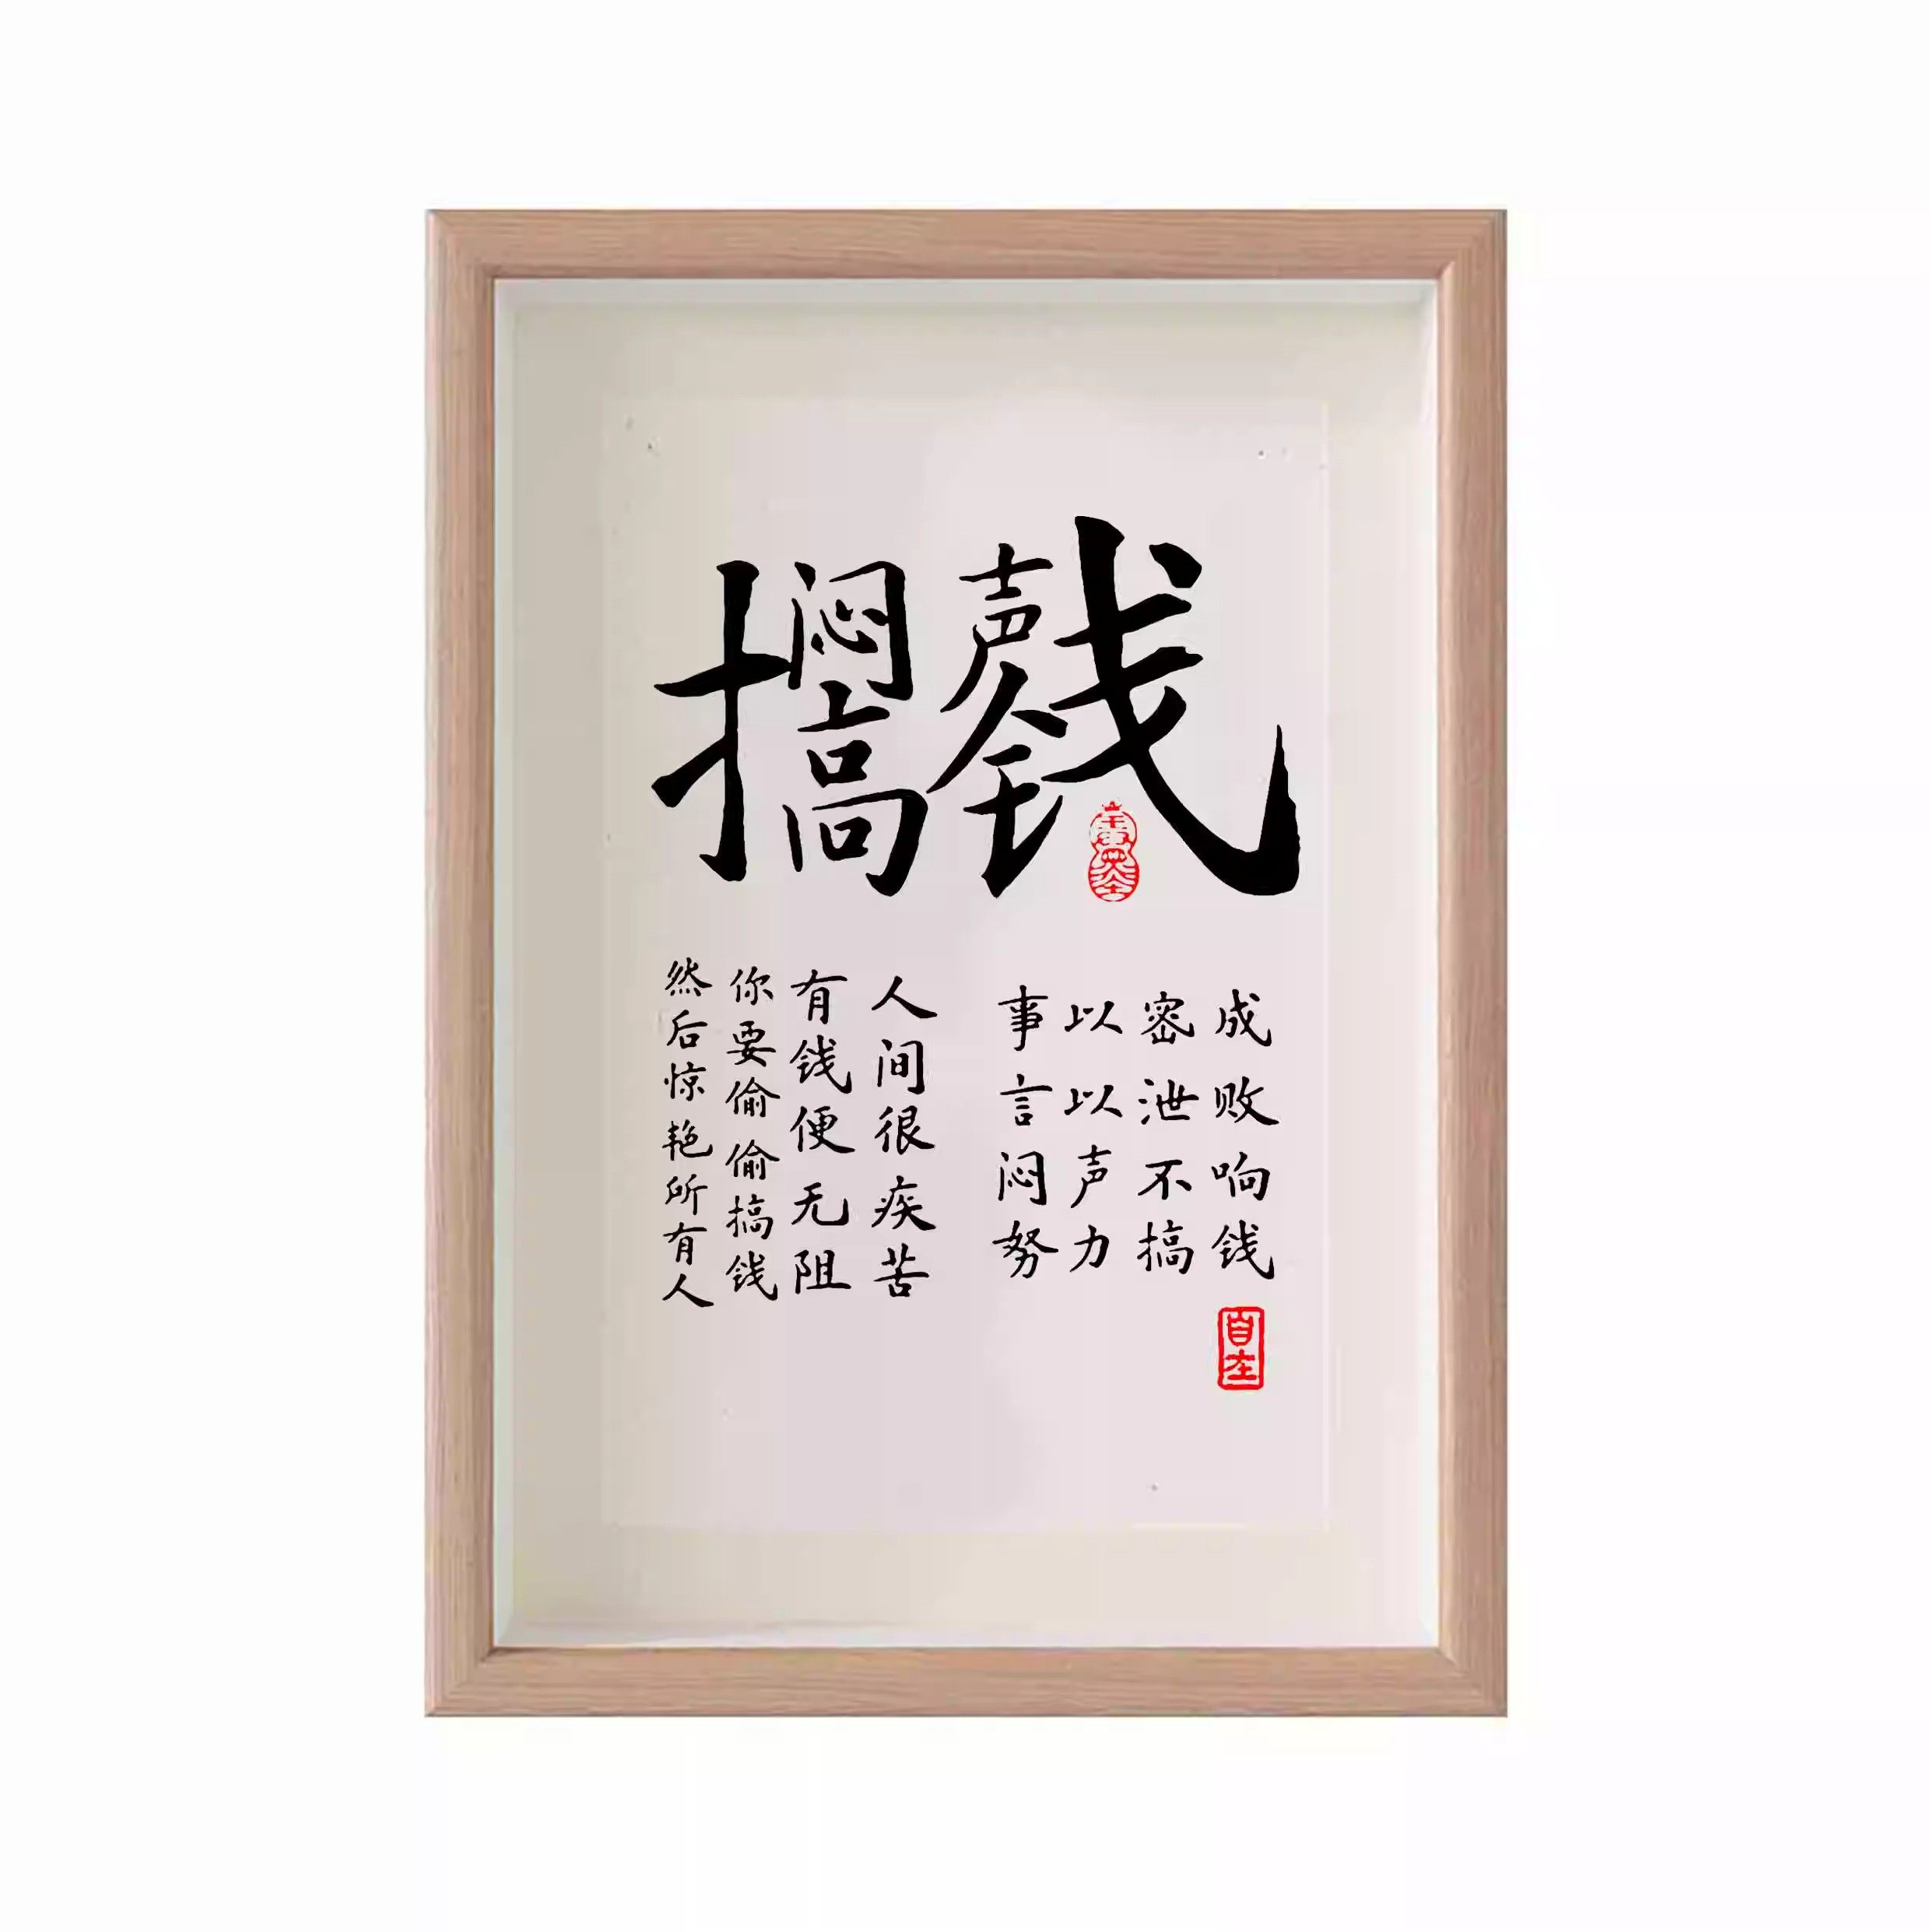 闷声
搞钱
事以密成
言以泄败
闷声不响
努力搞钱
人间很疾苦
有钱便无阻
你要偷偷搞钱
然后惊艳所有人
自在